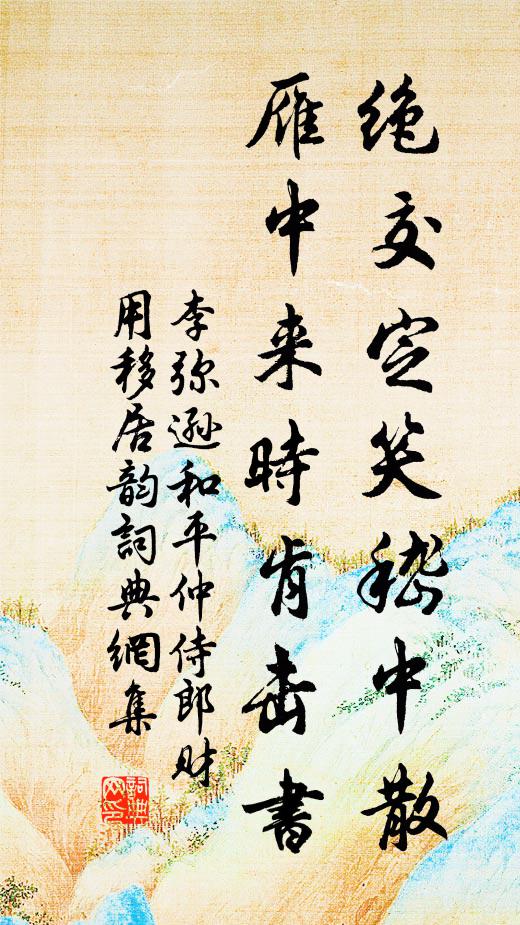 绝交定笑嵇中散
雁中来時肯書
李弥遜和平仲侍郎财
用移居韵詞典網集
詞典
网印